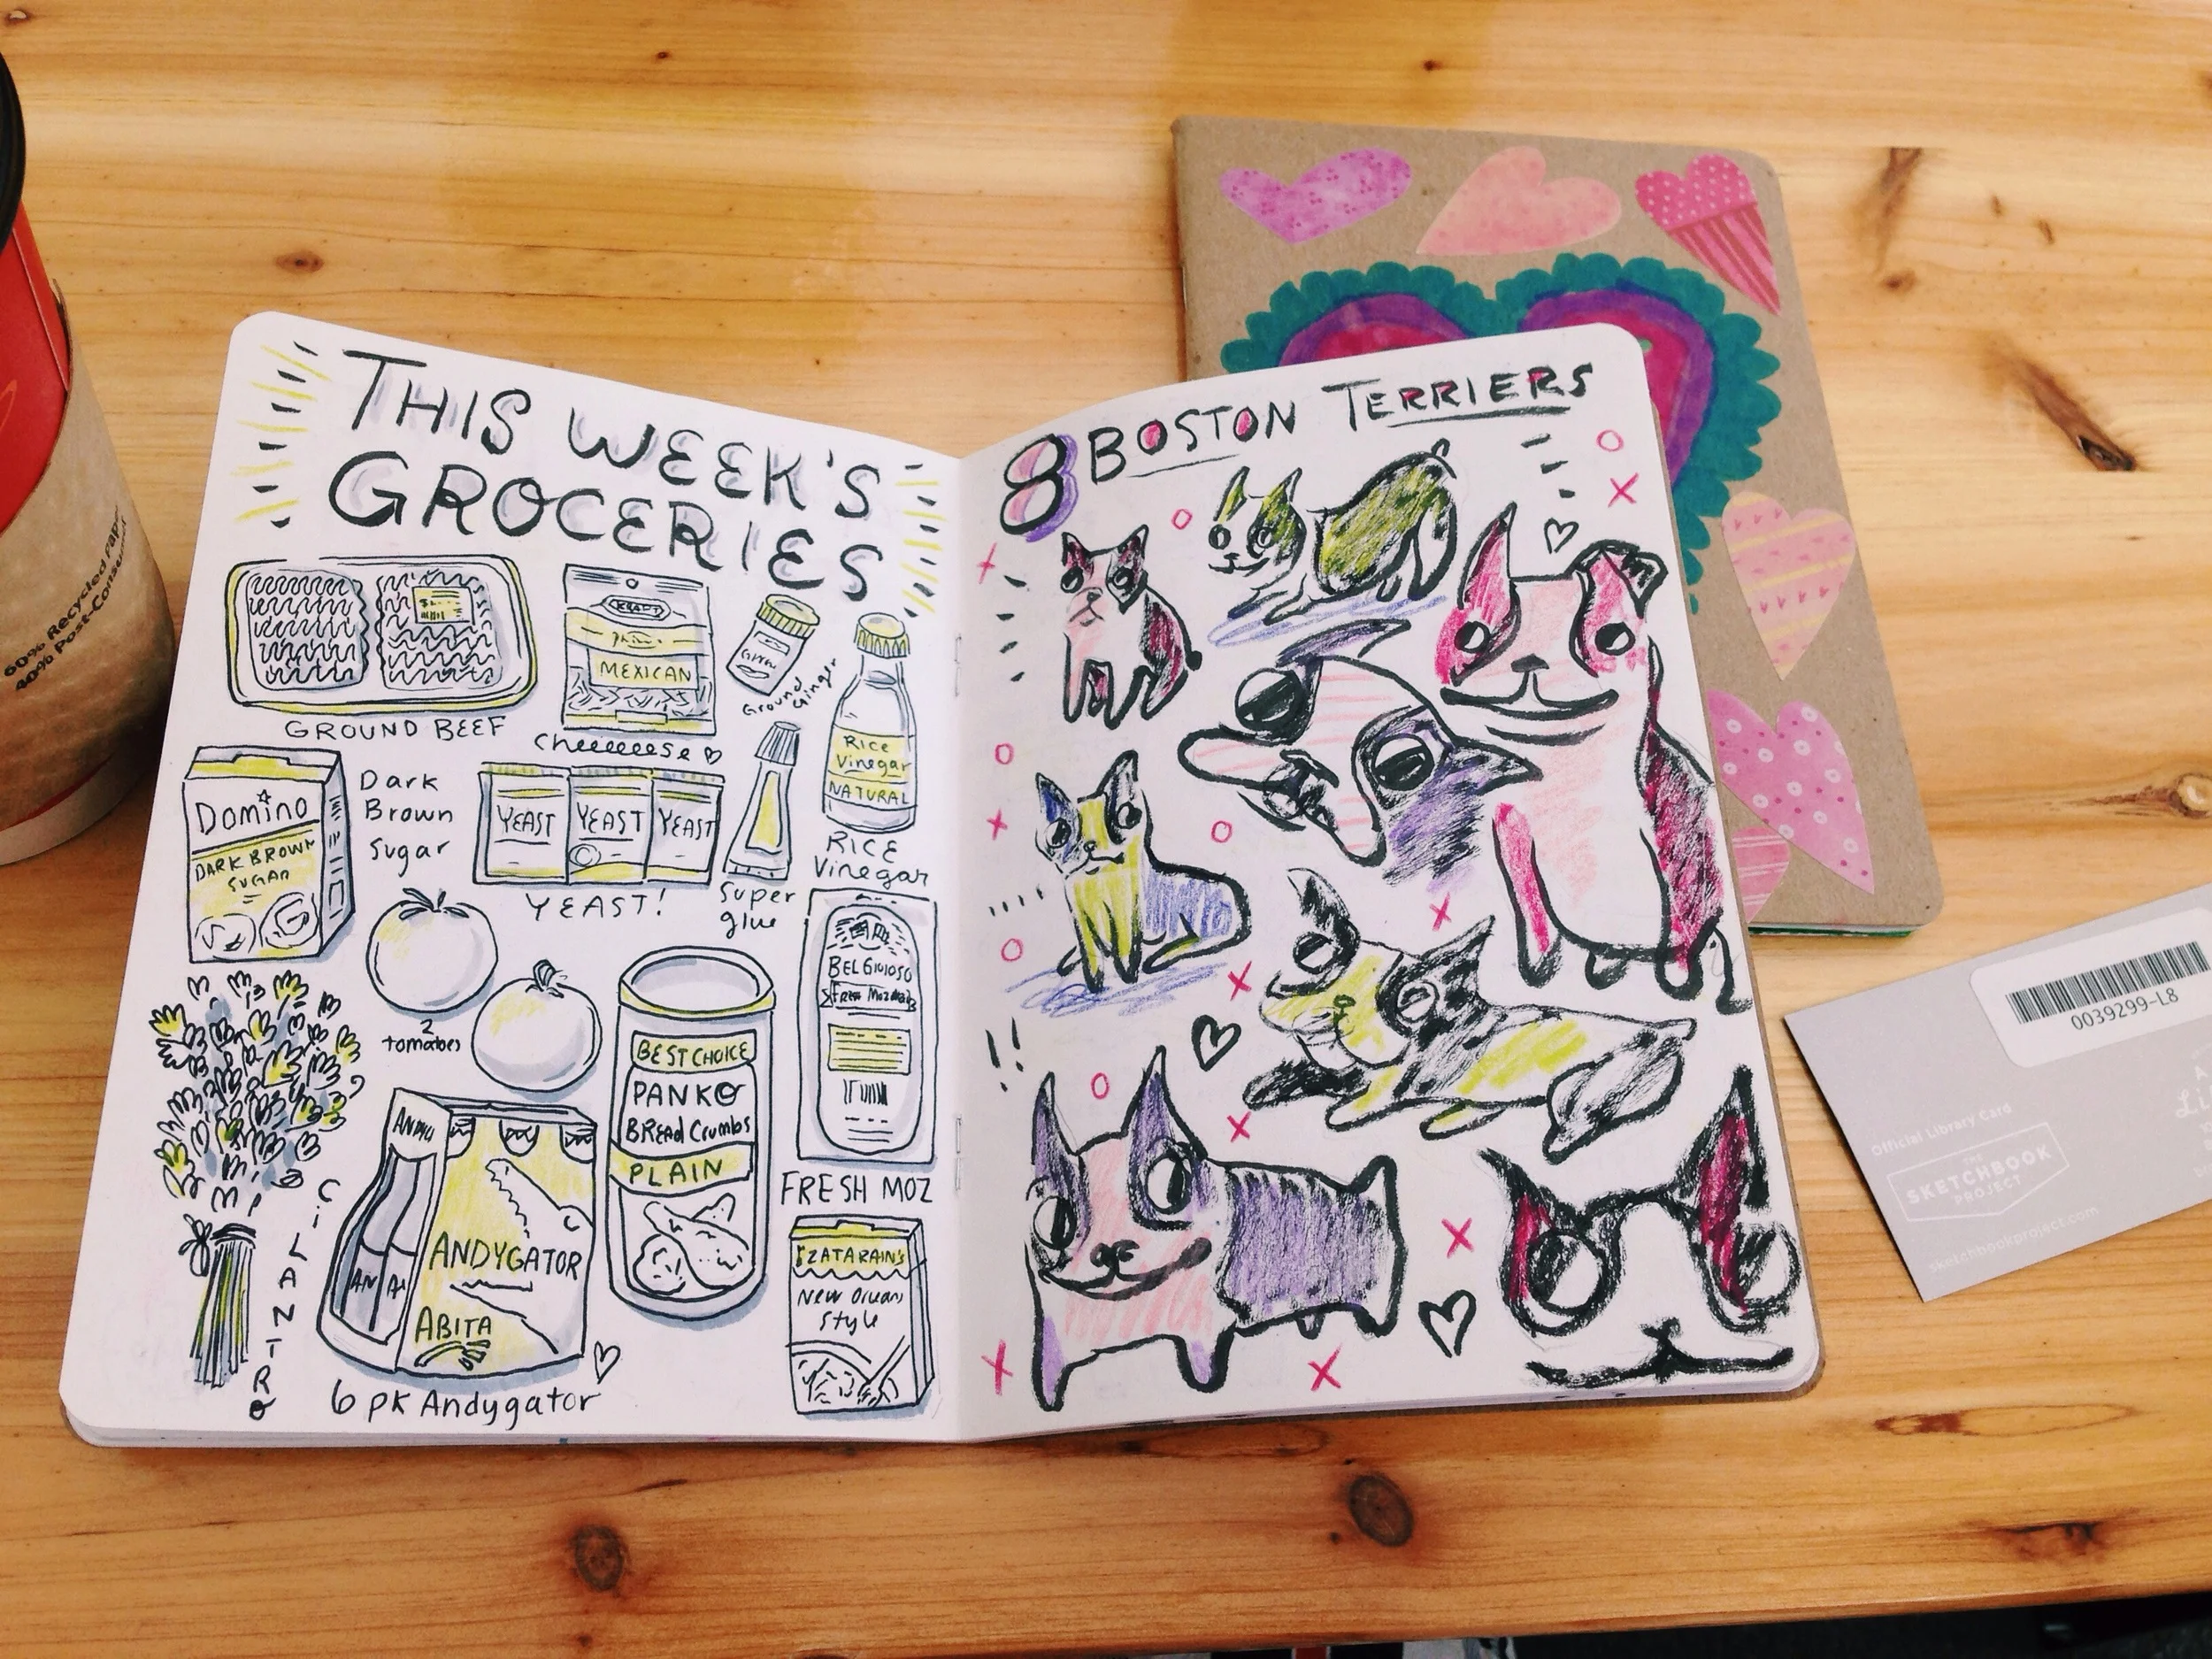 THIS WEEK'S
GROCERIES
GROUND BEEF
KRAFT
MEXICAN
Cheeeeese
Ground
Ginger
Rice
Vinegar
NATURAL
RICE
Vinegar
Domino
DARK BROWN
SUGAR
Dark
Brown
Sugar
YEAST YEAST YEAST
YEAST!
Super
glue
2
tomatoes
BELGIOIOSO
FRESH MOZ
BEST CHOICE
PANKO
BREAd Crumbs
PLAIN
CiLANTRO
ANDYGATOR
ABITA
6 pk Andygator
ZATARAIN'S
New Orleans
Style
8 BOSTON TERRIERS
!!
60% Recycled Paper
40% Post-Consumer
0039299-L8
Official Library Card
THE
SKETCHBOOK
PROJECT
sketchbookproject.com